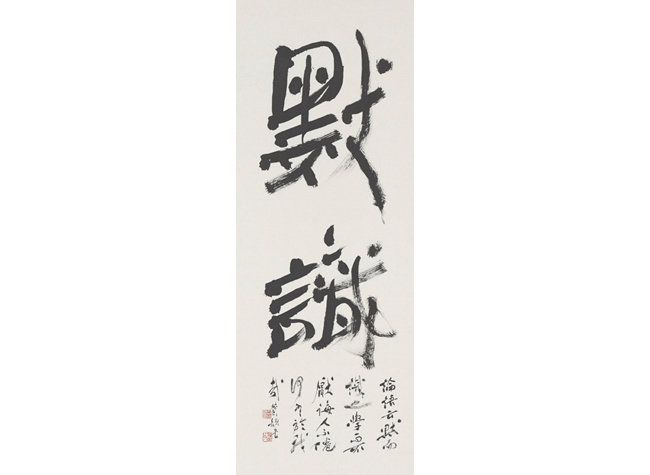 默識
論語云默而
識之學而不
厭誨人不倦
何有於我
哉